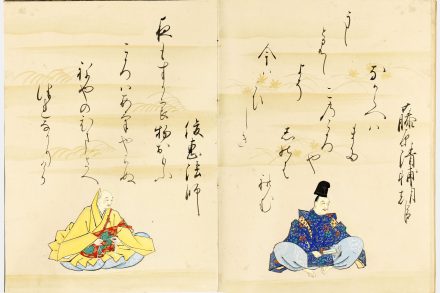 藤原清輔朝臣
なからへハ
また
このころや
しのはれむ
うし
とみし
よそ
今ハこひしき
俊恵法師
夜もすから物おもふ
ころハあけやらぬ
ねやのひまさへ
つれなかりけり